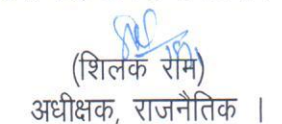 (शिलक राम)
अधीक्षक, राजनैतिक ।